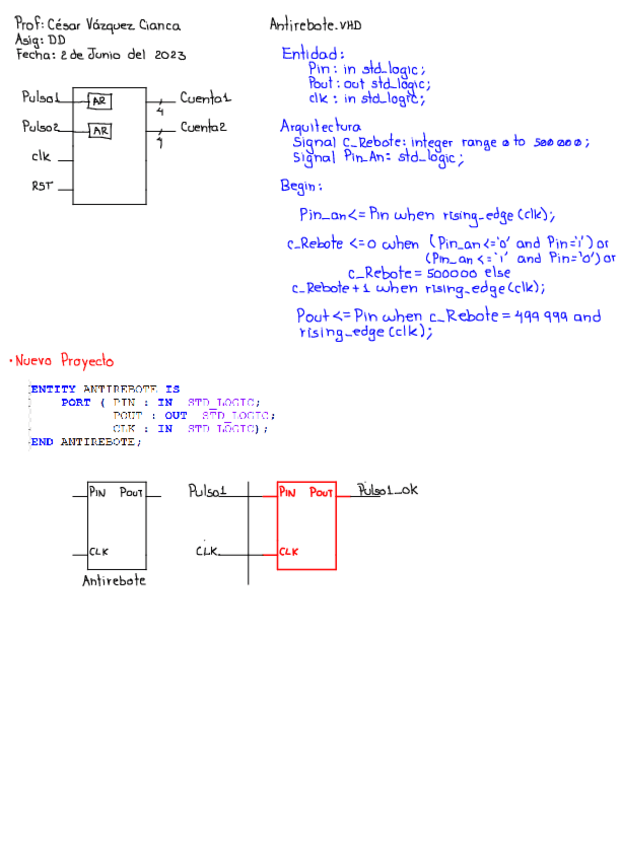 Prof: César Vázquez Cianca
Asig: DD
Fecha: 2 de Junio del 2023
Pulso1 AR 4 Cuenta1
Pulso2 AR 4 Cuenta2
clk
RST
Antirebote.VHD
Entidad:
Pin: in std_logic;
Pout: out std_logic;
clk: in std_logic;
Arquitectura
Signal C_Rebote: integer range 0 to 500000;
Signal Pin_An: std_logic;
Begin:
Pin_an<= Pin when rising_edge(clk);
c_Rebote <=0 when (Pin_an<='0' and Pin='1') or
(Pin_an<='1' and Pin='0') or
c_Rebote = 500000 else
c_Rebote+1 when rising_edge(clk);
Pout<=Pin when c_Rebote = 499 999 and
rising_edge(clk);
• Nuevo Proyecto
ENTITY ANTIREBOTE IS
PORT ( PIN : IN STD_LOGIC;
POUT : OUT STD_LOGIC;
CLK : IN STD_LOGIC);
END ANTIREBOTE;
PIN POUT
CLK
Antirebote
Pulso1 PIN POUT Pulso1_ok
CLK CLK